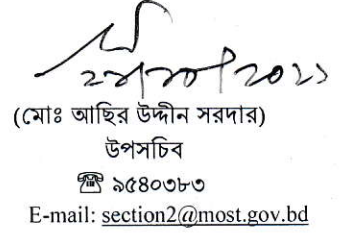 (মোঃ আছির উদ্দীন সরদার)
উপসচিব
☎ ৯৫৪০৩৮৩
E-mail: section2@most.gov.bd